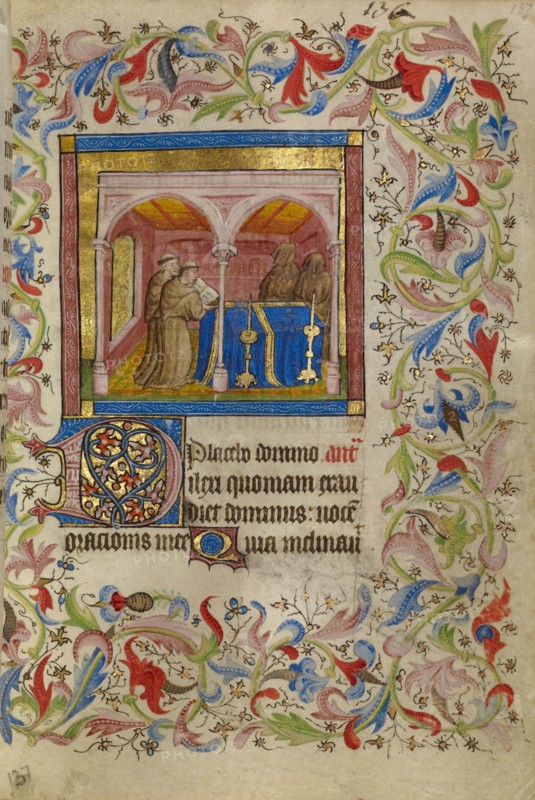 136
137
Placebo domino. an̄t
Dilexi quoniam exau
diet dominus: uocē
oracionis mee Quia inclinaui
137